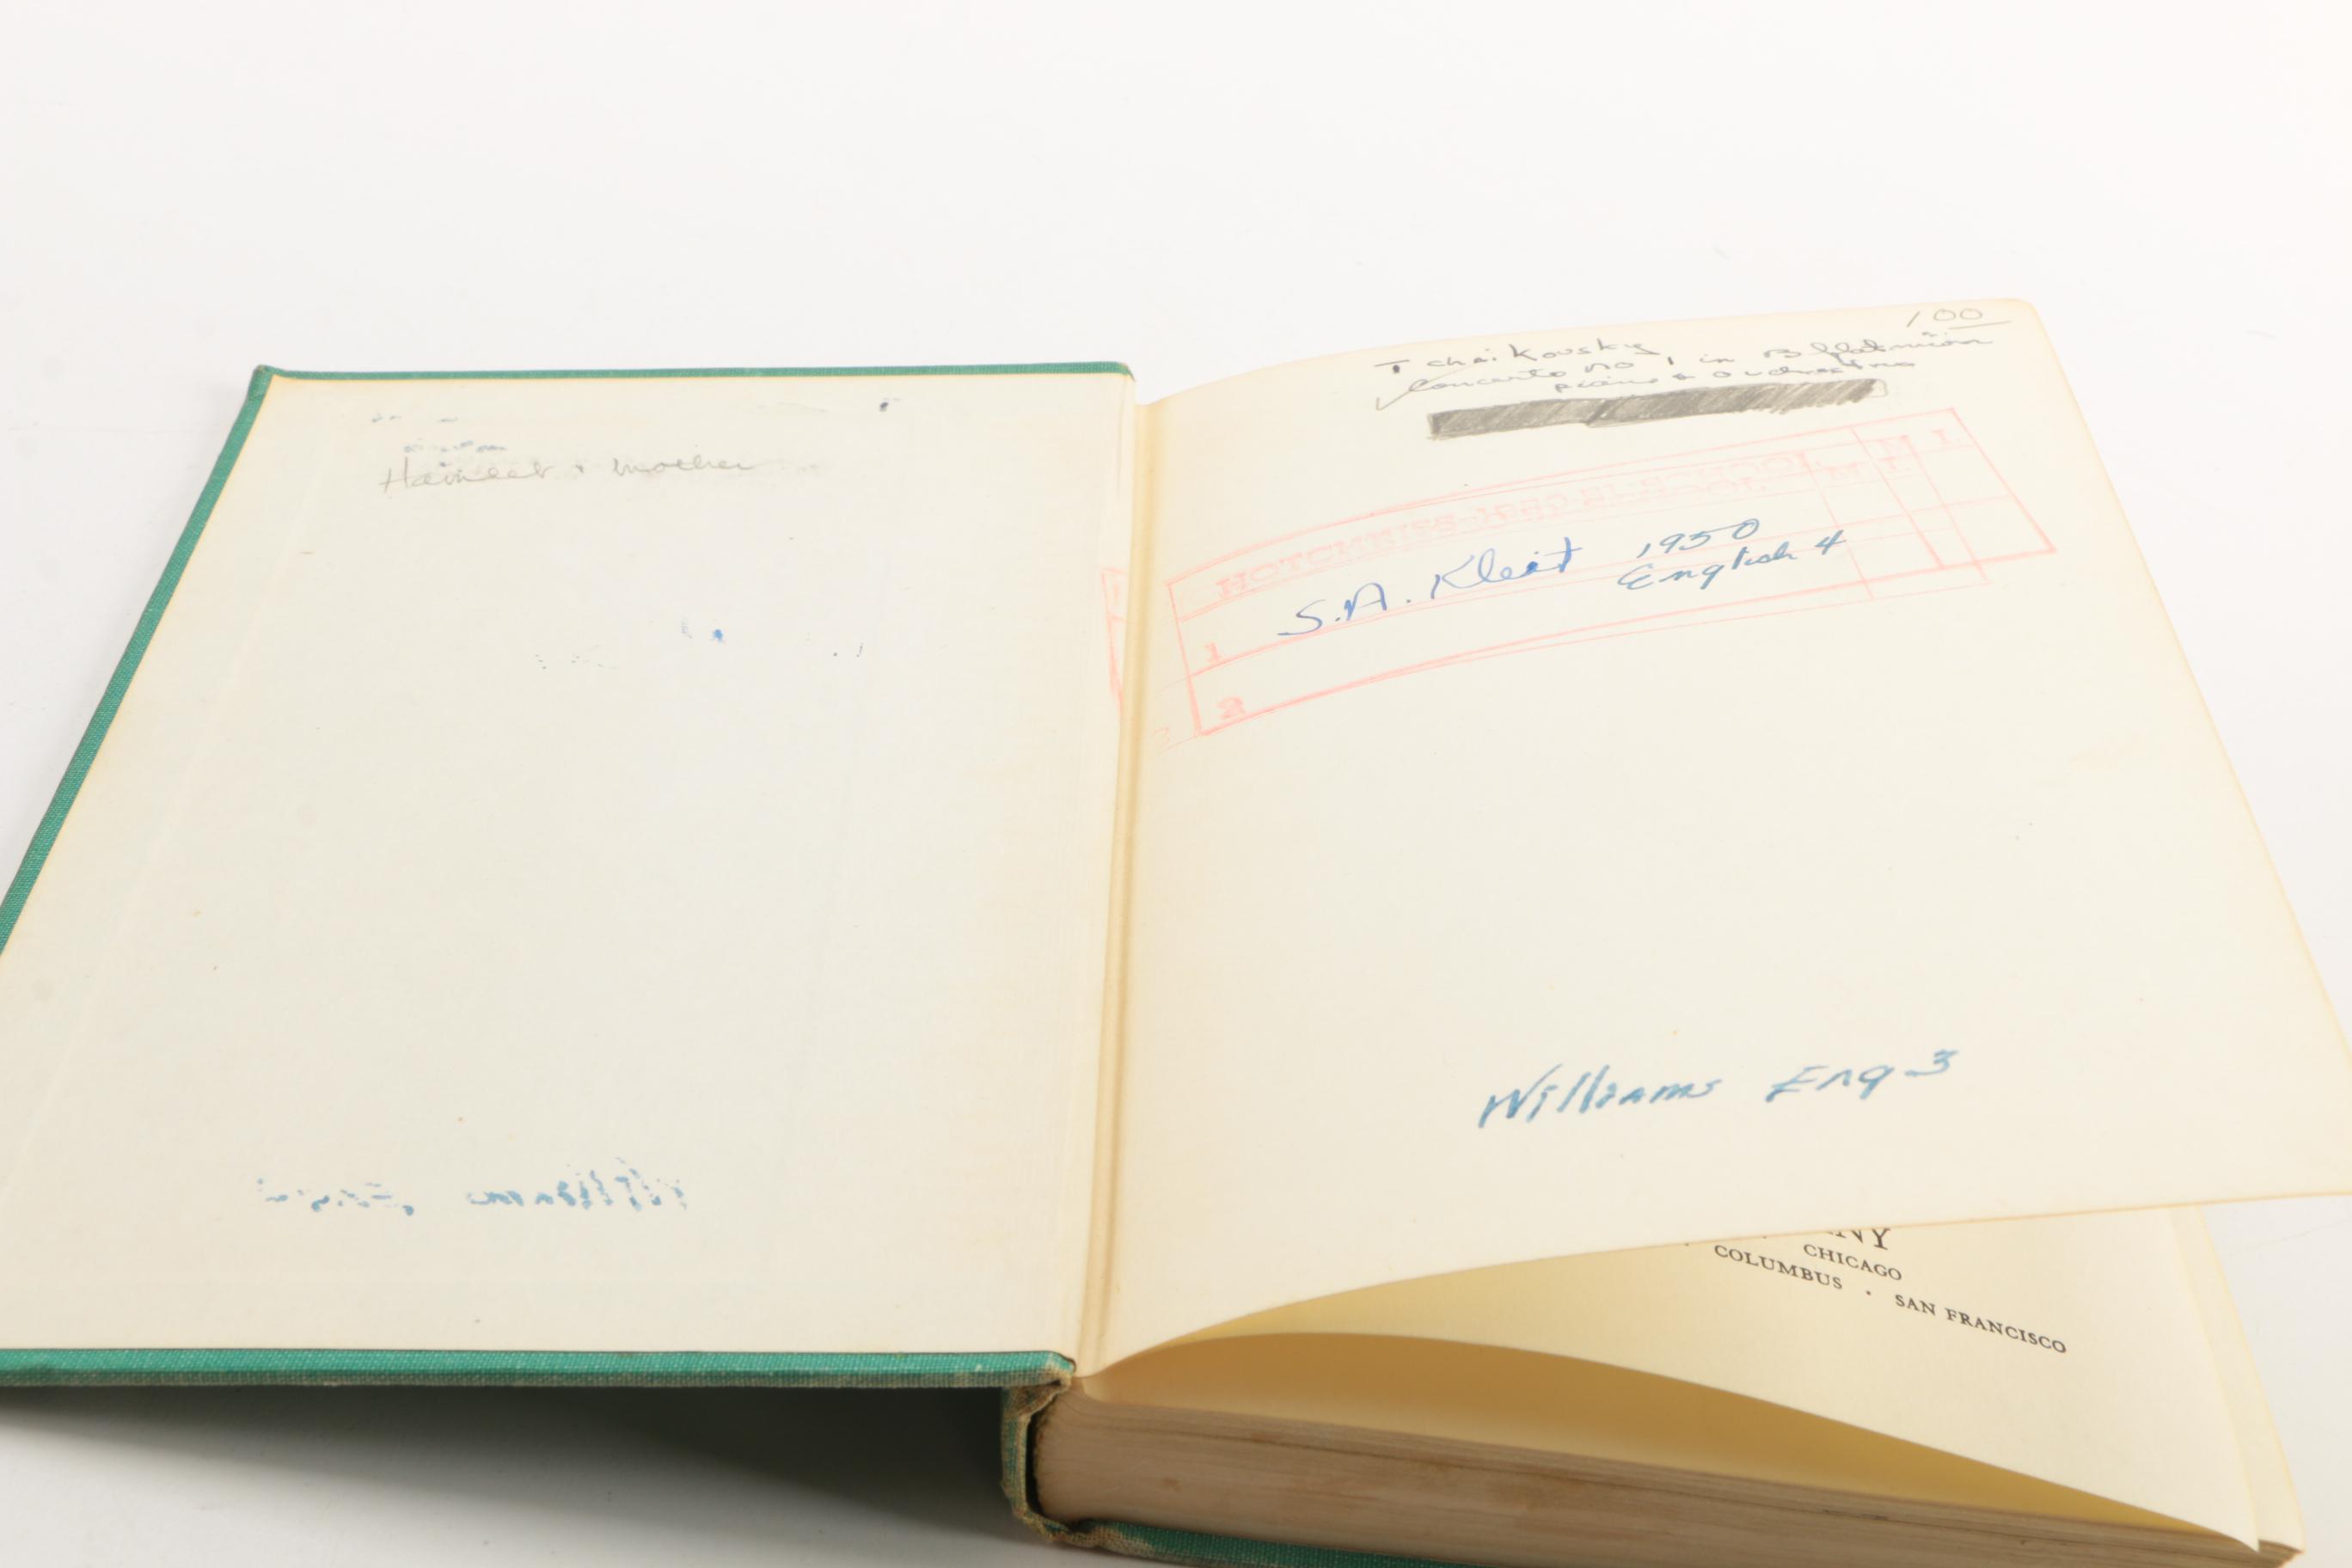 Hamlet & mother
100
Tchaikovsky
Concerto no 1 in B flat minor
piano & orchestra
HOTCHKISS
S.A. Kleit 1950
English 4
1
2
Williams Eng 3
NY
CHICAGO
COLUMBUS · SAN FRANCISCO